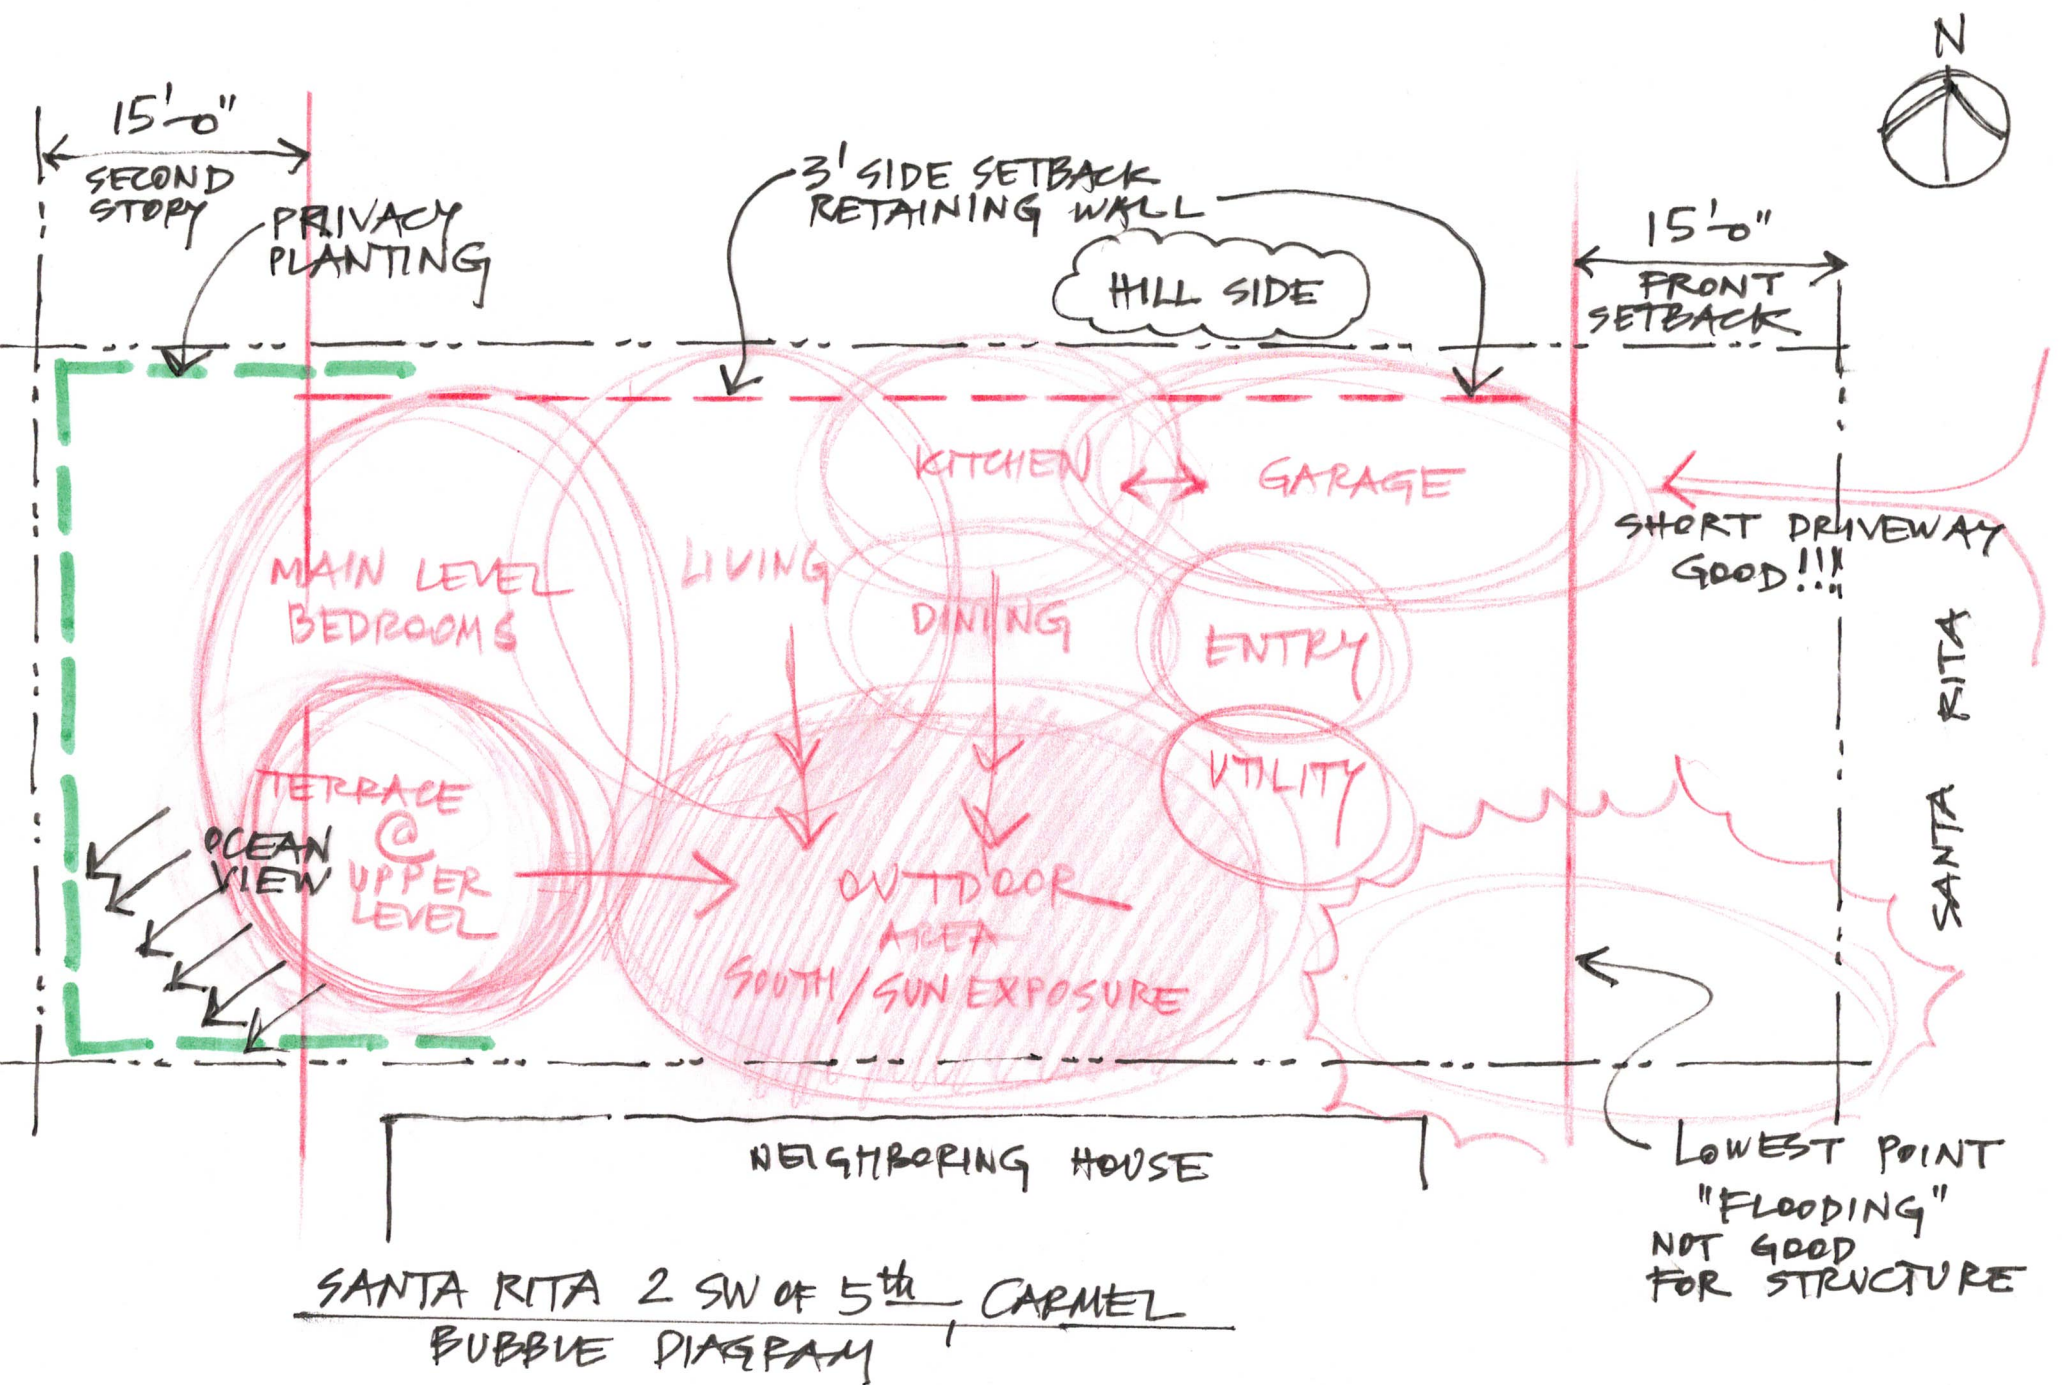 N
15'-0"
SECOND
STORY
PRIVACY
PLANTING
3' SIDE SETBACK
RETAINING WALL
HILL SIDE
15'-0"
FRONT
SETBACK
KITCHEN
GARAGE
SHORT DRIVEWAY
GOOD!!!
MAIN LEVEL
BEDROOMS
LIVING
DINING
ENTRY
UTILITY
SANTA RITA
TERRACE
@
UPPER
LEVEL
OCEAN
VIEW
OUTDOOR
AREA
SOUTH/SUN EXPOSURE
NEIGHBORING HOUSE
LOWEST POINT
"FLOODING"
NOT GOOD
FOR STRUCTURE
SANTA RITA 2 SW OF 5th, CARMEL
BUBBLE DIAGRAM